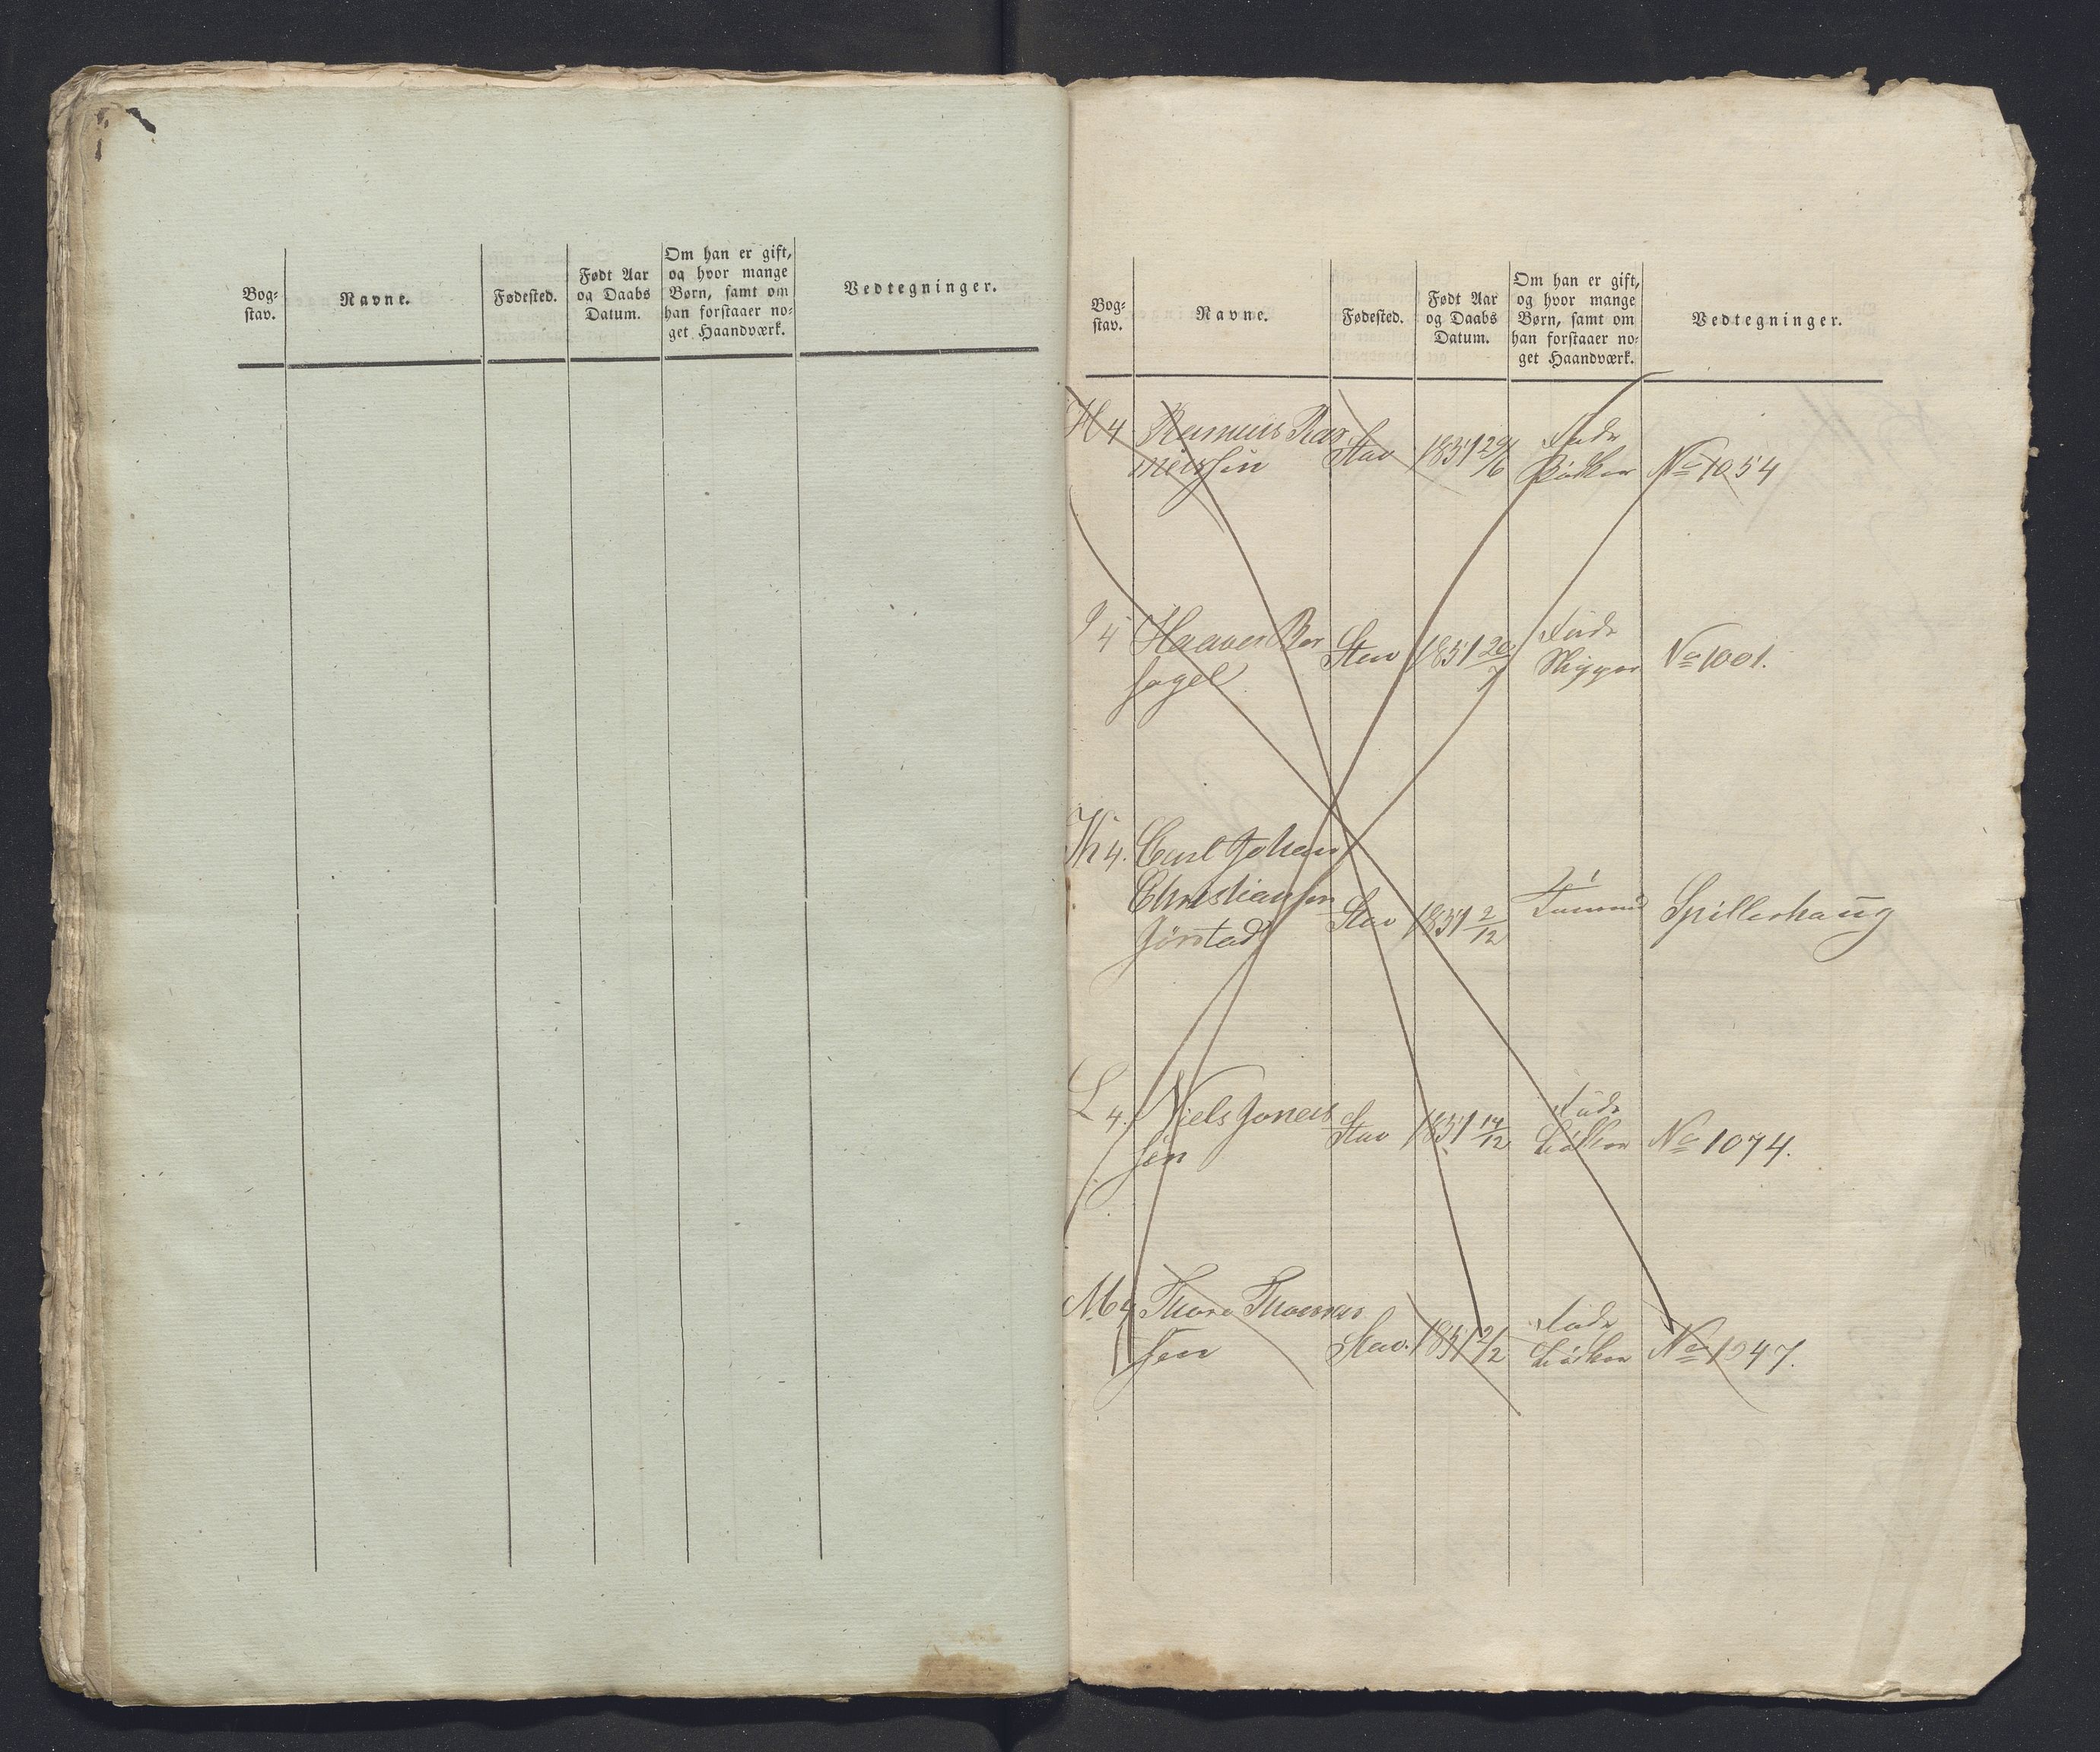 Bog-
stav.
Navne.
Fødested.
Født Aar
og Daabs
Datum.
Om han er gift,
og hvor mange
Børn, samt om
han forstaaer no-
get Haandværk.
Vedtegninger.
Bog-
stav.
Navne.
Fødested.
Født Aar
og Daabs
Datum.
Om han er gift,
og hvor mange
Børn, samt om
han forstaaer no-
get Haandværk.
Vedtegninger.
H 4 Rasmus Ras
mussen Stav 1851 29/6 Bødker No 1054
I 4 Haaver
Stav 1851 20/7 No 1001.
K 4. Carl Johan
Christiansen
Jørstad Stav 1851 2/12 Spillerhaug
L 4. Niels Jones
sen Stav 1851 14/12 bødker No 1074.
M 4 Thore Thomas
sen Stav. 1851 2/2 bødker No 1047.